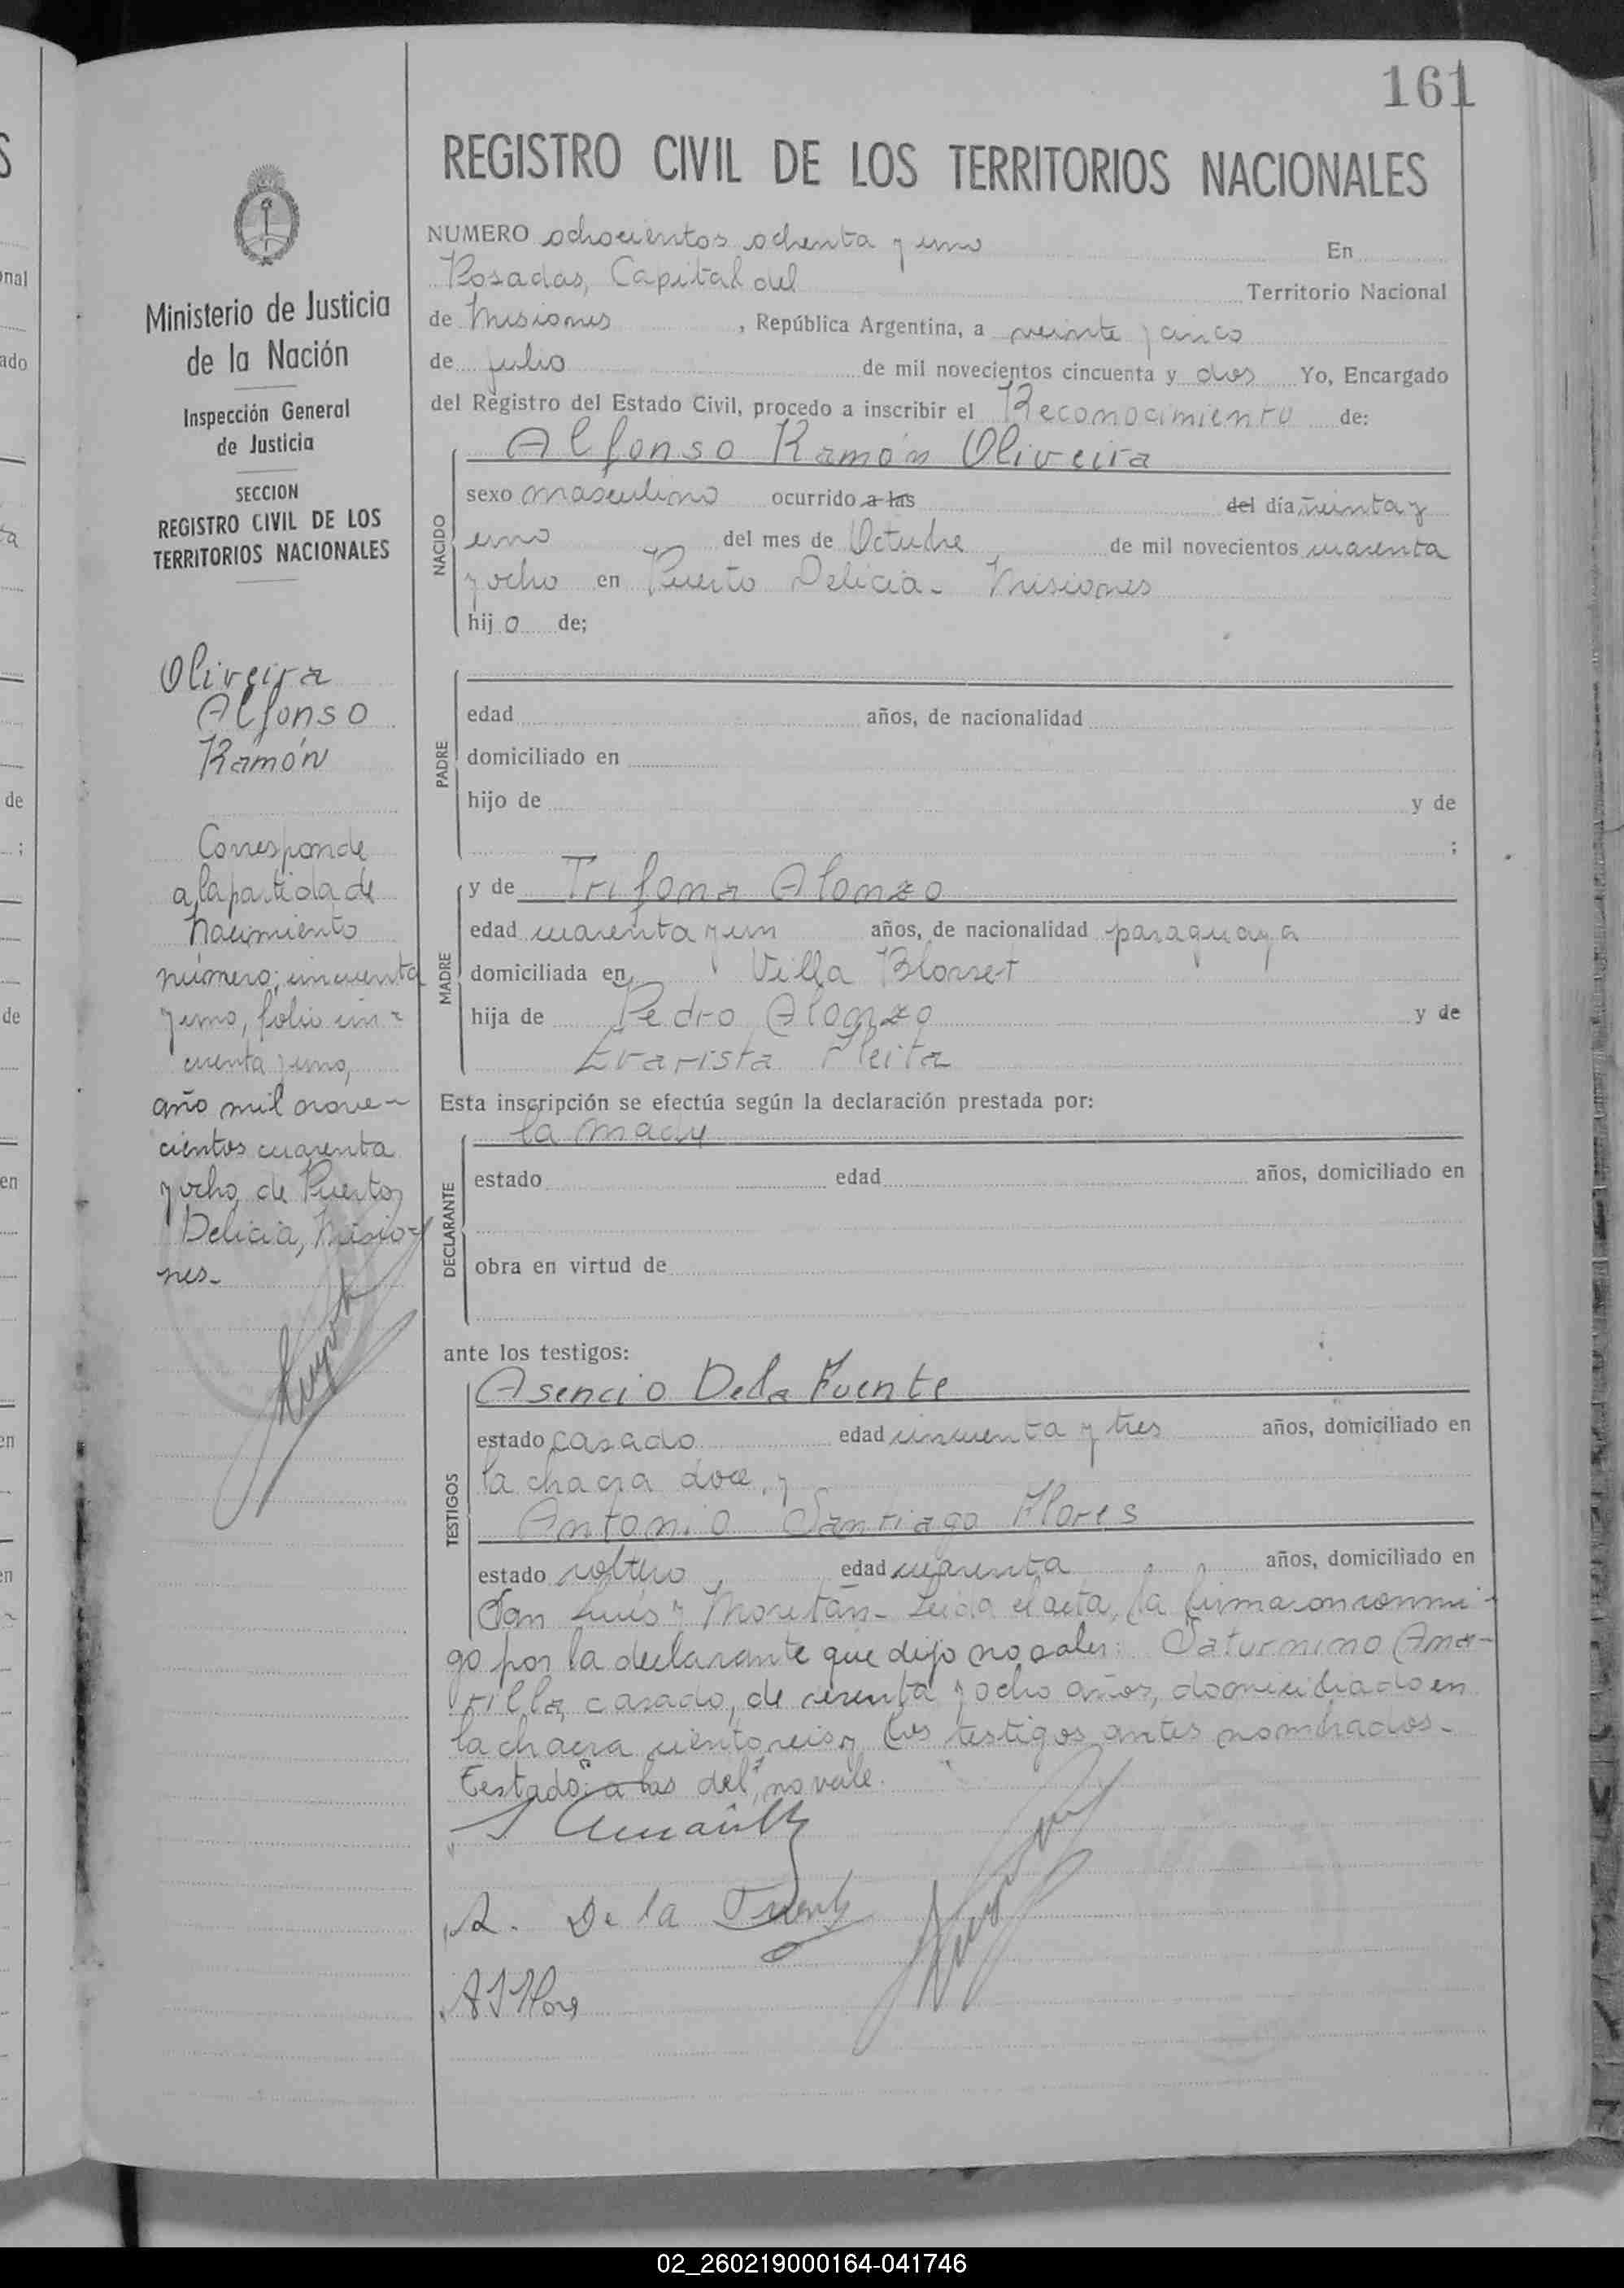 161
REGISTRO CIVIL DE LOS TERRITORIOS NACIONALES
Ministerio de Justicia
de la Nación
Inspección General
de Justicia
SECCION
REGISTRO CIVIL DE LOS
TERRITORIOS NACIONALES
Oliveira
Alfonso
Ramón
Corresponde
a la partida de
Nacimiento
número; cincuenta
y uno, folio cin-
cuenta y uno,
año mil nove-
cientos cuarenta
y ocho, de Puerto
Delicia, Misio-
nes-
NUMERO ochocientos ochenta y uno En
Posadas, Capital del Territorio Nacional
de Misiones , República Argentina, a veinte y cinco
de julio de mil novecientos cincuenta y dos Yo, Encargado
del Registro del Estado Civil, procedo a inscribir el Reconocimiento de:
NACIDO
Alfonso Ramón Oliveira
sexo masculino ocurrido a las del día treinta y
uno del mes de Octubre de mil novecientos cuarenta
y ocho en Puerto Delicia- Misiones
hijo de;
PADRE
edad años, de nacionalidad
domiciliado en
hijo de y de
;
MADRE
y de Trifona Alonzo
edad cuarenta y un años, de nacionalidad paraguaya
domiciliada en Villa Blosset
hija de Pedro Alonzo y de
Evarista Fleita
Esta inscripción se efectúa según la declaración prestada por:
DECLARANTE
la madre
estado edad años, domiciliado en
obra en virtud de
ante los testigos:
TESTIGOS
Asencio De la Fuente
estado casado edad cincuenta y tres años, domiciliado en
la chacra doce, y
Antonio Santiago Flores
estado soltero edad cuarenta años, domiciliado en
San Luis y Moritán- Leida el acta, la firmaron conmi-
go por la declarante que dijo no saber: Saturnino Ama-
rilla, casado, de sesenta y ocho años, domiciliado en
la chacra ciento seis y los testigos antes nombrados-
Testado: "a las del", no vale.
A. De la Fuente
A S Flores
02_260219000164-041746